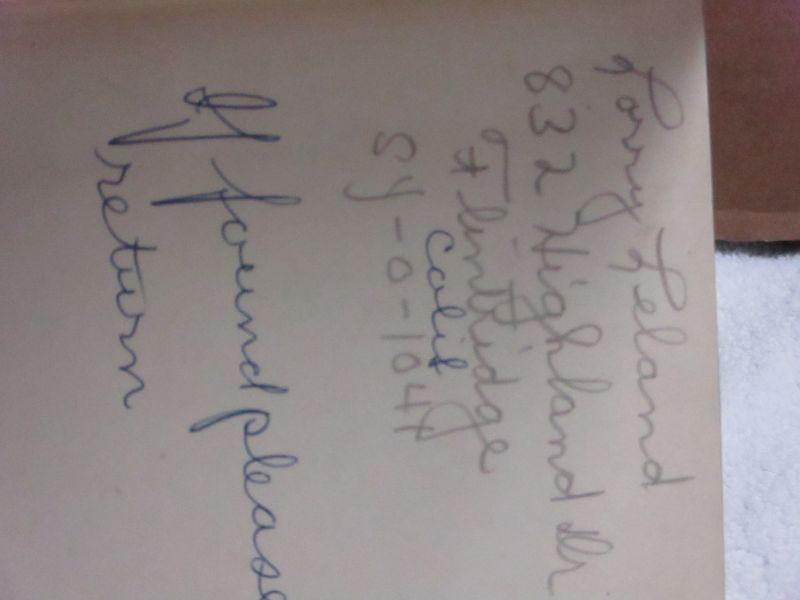 Lorry Leland
832 Highland Dr
Flintridge
Calif
Sy-0-104
If found please
return